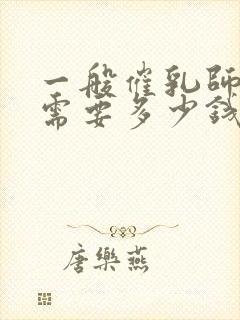 一般催乳師
需要多少錢
唐樂燕